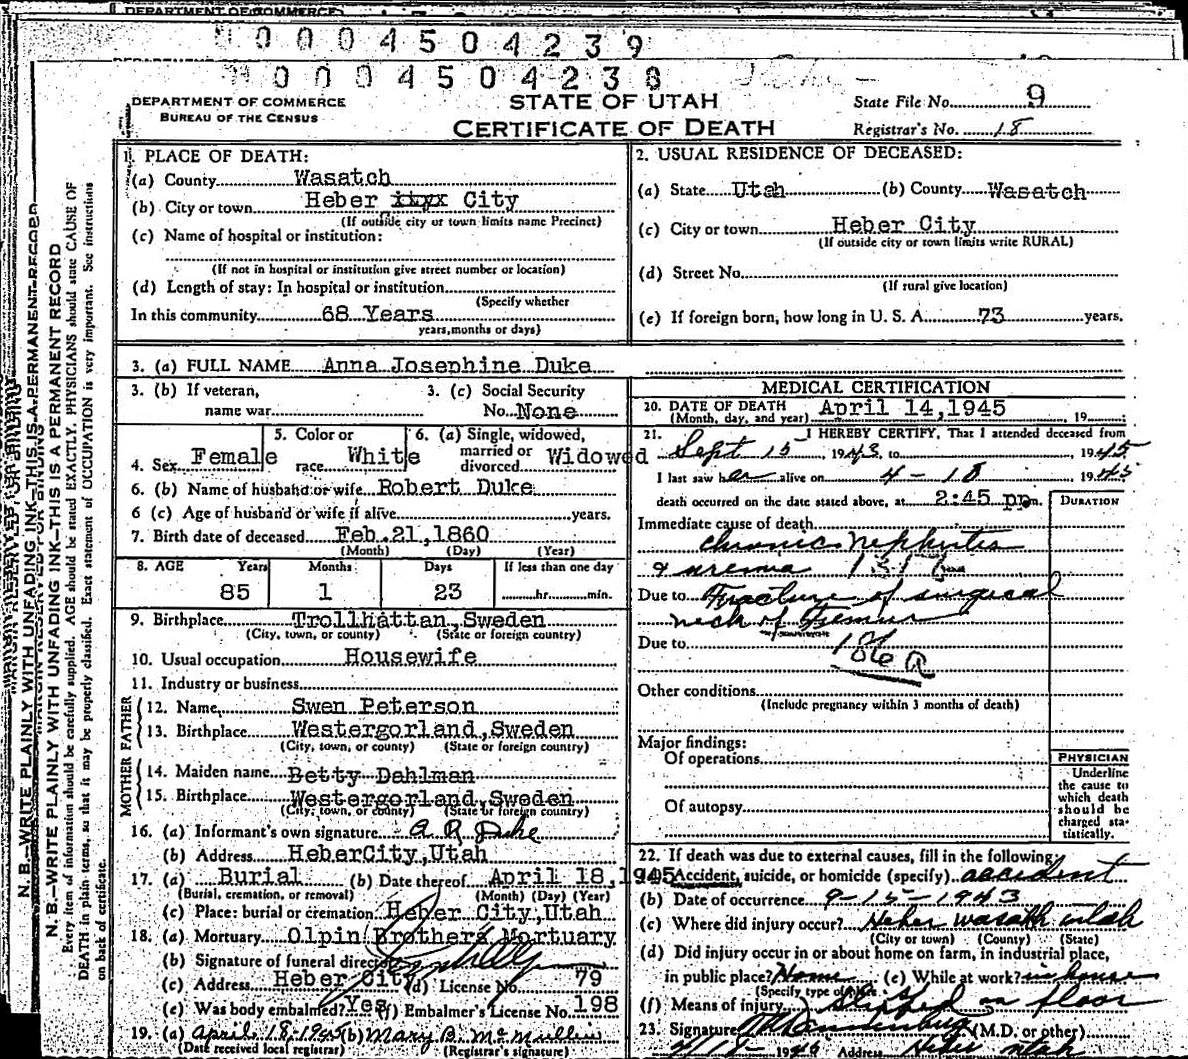 DEPARTMENT OF COMMERCE
0 0 0 4 5 0 4 2 3 9
0 0 0 4 5 0 4 2 3 8
DEPARTMENT OF COMMERCE
BUREAU OF THE CENSUS
STATE OF UTAH
CERTIFICATE OF DEATH
State File No. 9
Registrar's No. 18
N. B.—WRITE PLAINLY WITH UNFADING INK—THIS IS A PERMANENT RECORD
N. B.—WRITE PLAINLY WITH UNFADING INK—THIS IS A PERMANENT RECORD
Every item of information should be carefully supplied. AGE should be stated EXACTLY. PHYSICIANS should state CAUSE OF
DEATH in plain terms, so that it may be properly classified. Exact statement of OCCUPATION is very important. See instructions
on back of certificate.
1. PLACE OF DEATH:
(a) County Wasatch
(b) City or town Heber City
(If outside city or town limits name Precinct)
(c) Name of hospital or institution:
(If not in hospital or institution give street number or location)
(d) Length of stay: In hospital or institution
(Specify whether
In this community 68 Years
years, months or days)
2. USUAL RESIDENCE OF DECEASED:
(a) State Utah (b) County Wasatch
(c) City or town Heber City
(If outside city or town limits write RURAL)
(d) Street No.
(If rural give location)
(e) If foreign born, how long in U. S. A. 73 years.
3. (a) FULL NAME Anna Josephine Duke
3. (b) If veteran, name war
3. (c) Social Security No. None
4. Sex Female
5. Color or race White
6. (a) Single, widowed, married or divorced Widowed
6. (b) Name of husband or wife Robert Duke
6 (c) Age of husband or wife if alive years.
7. Birth date of deceased Feb. 21, 1860
(Month) (Day) (Year)
8. AGE Years Months Days If less than one day
85 1 23 hr. min.
9. Birthplace Trollhattan, Sweden
(City, town, or county) (State or foreign country)
10. Usual occupation Housewife
11. Industry or business
FATHER
12. Name Swen Peterson
13. Birthplace Westergorland, Sweden
(City, town, or county) (State or foreign country)
MOTHER
14. Maiden name Betty Dahlman
15. Birthplace Westergorland, Sweden
(City, town, or county) (State or foreign country)
16. (a) Informant's own signature A R Duke
(b) Address Heber City, Utah
17. (a) Burial (b) Date thereof April 18, 1945
(Burial, cremation, or removal) (Month) (Day) (Year)
(c) Place: burial or cremation Heber City, Utah
18. (a) Mortuary Olpin Brothers Mortuary
(b) Signature of funeral director
(c) Address Heber City (d) License No. 79
(e) Was body embalmed? Yes (f) Embalmer's License No. 198
19. (a) April 18-1945 (b) Mary B. McMullin
(Date received local registrar) (Registrar's signature)
MEDICAL CERTIFICATION
20. DATE OF DEATH April 14, 1945 19
(Month, day, and year)
21. I HEREBY CERTIFY, That I attended deceased from
Sept 15, 1943, to , 1945
I last saw her alive on 4-18, 1945
death occurred on the date stated above, at 2:45 pm.
DURATION
Immediate cause of death
chronic nephritis
& uremia 131
Due to Fracture of surgical
neck of Femur
Due to 186 a
Other conditions
(Include pregnancy within 3 months of death)
Major findings:
Of operations
Of autopsy
PHYSICIAN
Underline
the cause to
which death
should be
charged sta-
tistically.
22. If death was due to external causes, fill in the following:
(a) Accident, suicide, or homicide (specify) accident
(b) Date of occurrence 9-15-1943
(c) Where did injury occur? Heber Wasatch Utah
(City or town) (County) (State)
(d) Did injury occur in or about home on farm, in industrial place,
in public place? Home (e) While at work? in house
(Specify type of place)
(f) Means of injury slipped on floor
23. Signature (M.D. or other)
Address Heber Utah